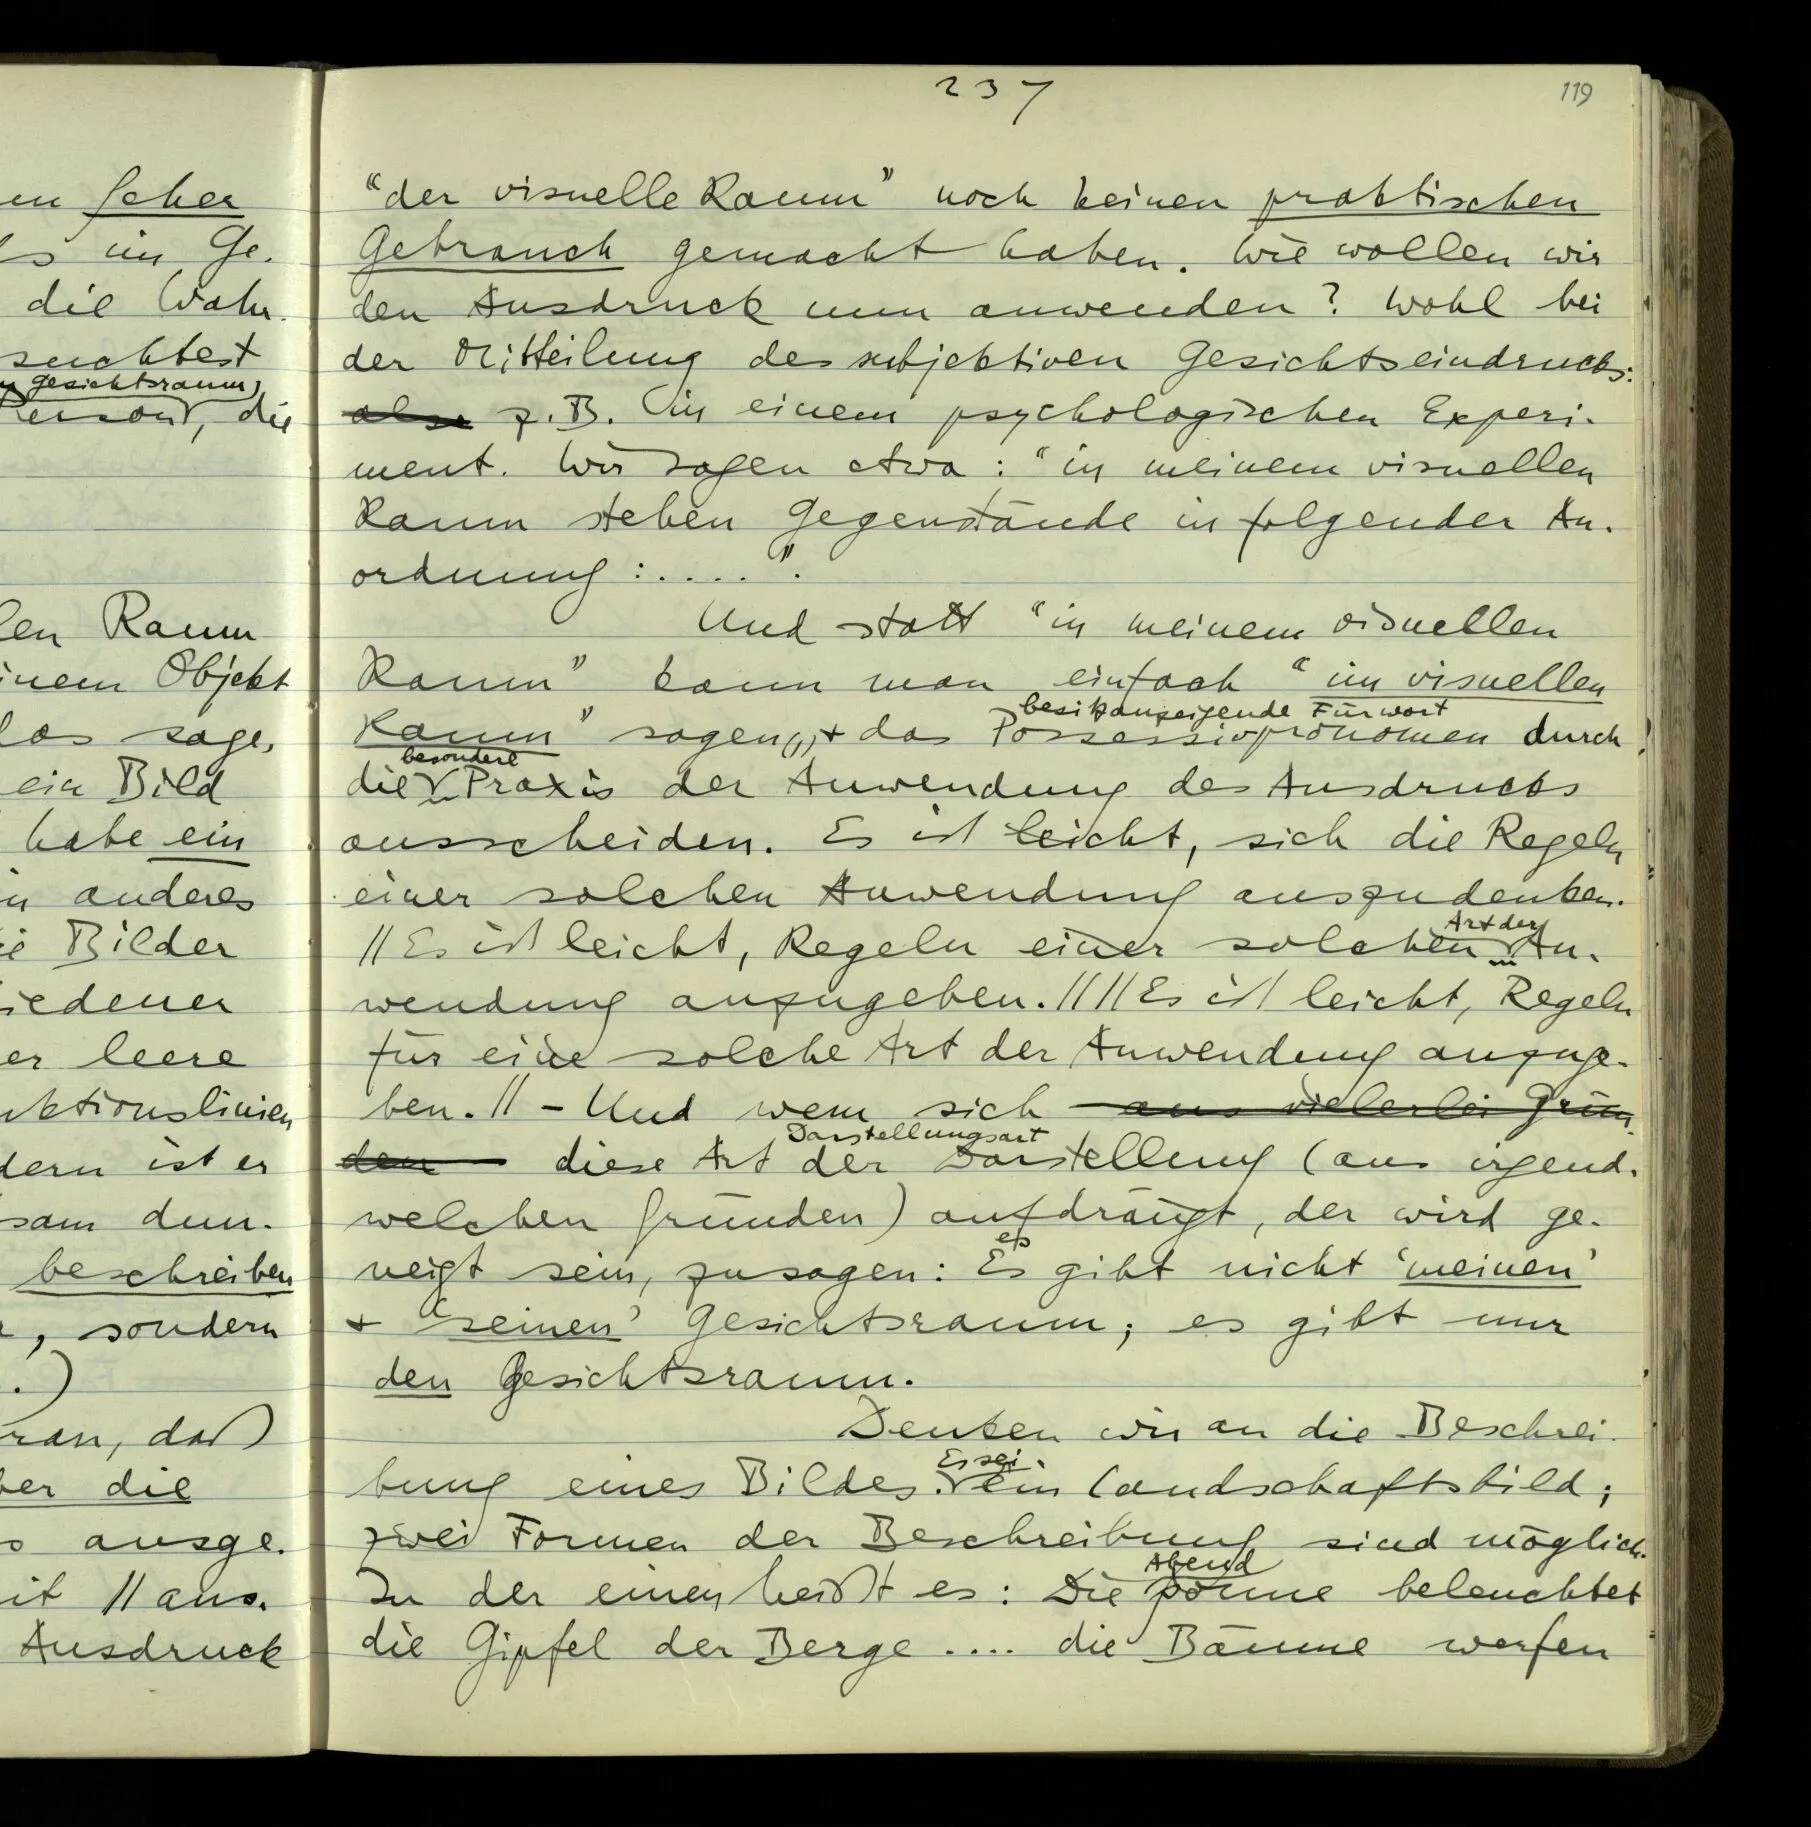 en Seher
ls im Ge-
die Wahr-
suchtest
Gesichtsraum,
Person, die
len Raum
inem Objekt
das sage,
ein Bild
habe ein
in anderes
ie Bilder
iedener
er leere
uktionslinien
dern ist er
sam dun-
beschreiben
, sondern
.)
ran, daß
ber die
s ausge-
it // aus-
Ausdruck
237
119
“der visuelle Raum” noch keinen praktischen
Gebrauch gemacht haben. Wie wollen wir
den Ausdruck nun anwenden? Wohl bei
der Mitteilung des subjektiven Gesichtseindrucks:
also z.B. in einem psychologischen Experi-
ment. Wir sagen etwa: “in meinem visuellen
Raum stehen Gegenstände in folgender An-
ordnung:.....”.
Und statt “in meinem visuellen
Raum” kann man einfach “im visuellen
besitzanzeigende Fürwort
Raum” sagen(,)+ das Possessivpronomen durch
besondere
die Praxis der Anwendung des Ausdrucks
ausscheiden. Es ist leicht, sich die Regeln
einer solchen Anwendung auszudenken.
Art der
//Es ist leicht, Regeln einer solchen An-
wendung anzugeben.// //Es ist leicht, Regeln
für eine solche Art der Anwendung anzuge-
ben.// – Und wem sich aus vielerlei Grün-
Darstellungsart
den diese Art der Darstellung (aus irgend-
welchen Gründen) aufdrängt, der wird ge-
es
neigt sein, zusagen: Es gibt nicht ‘meinen’
+ ‘seinen’ Gesichtsraum; es gibt nur
den Gesichtsraum.
Denken wir an die Beschrei-
Es sei
bung eines Bildes. ein Landschaftsbild;
zwei Formen der Beschreibung sind möglich.
Abend
In der einen heißt es: Die sonne beleuchtet
die Gipfel der Berge .... die Bäume werfen